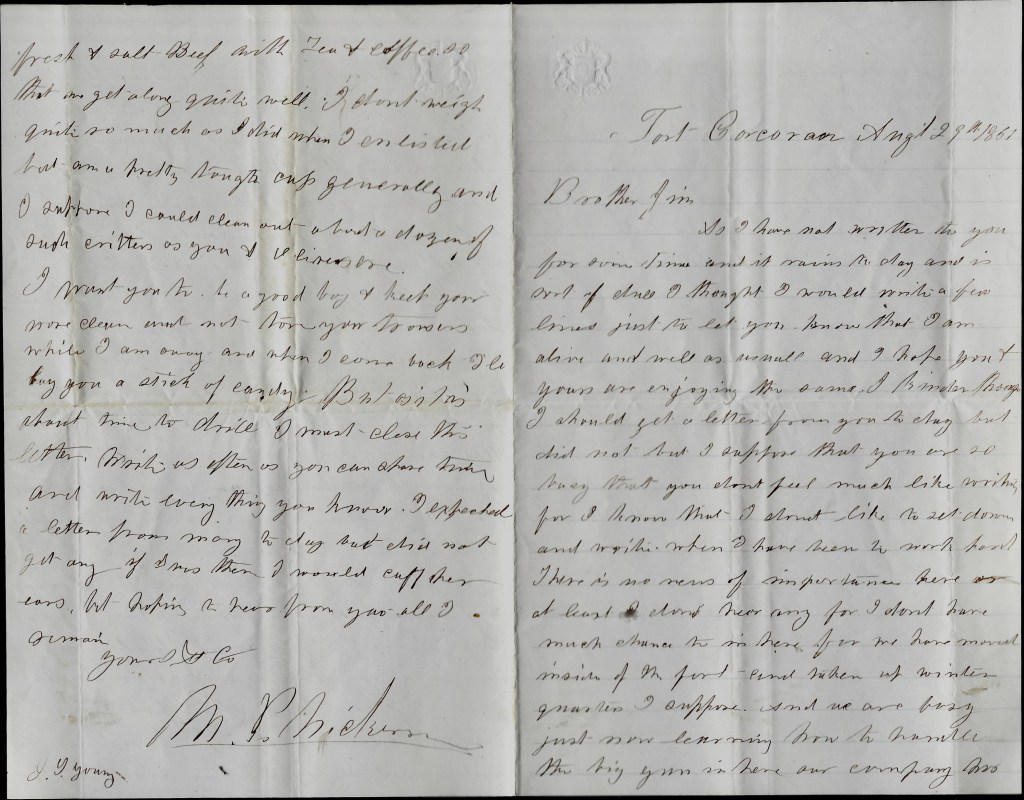 Fort Corcoran Augt 29th 1861
Brother Jim
As I have not written to you
for some time and it rains to day and is
sort of dull I thought I would write a few
lines just to let you know that I am
alive and well as usuall and I hope you &
yours are enjoying the same. I kinder thought
I should get a letter from you to day but
did not but I suppose that you are so
busy that you dont feel much like writing
for I know that I dont like to set down
and write when I have been to work hard
There is no news of importance here or
at least I dont hear any for I dont have
much chance to in here for we have moved
inside of the fort and taken up winter
quarters I suppose. And we are busy
just now learning how to handle
the big guns in here our company has
fresh & salt Beef with Tea & coffee so
that we get along quite well. I dont weigh
quite so much as I did when I enlisted
but am a pretty tough cuss generally and
I suppose I could clean out about a dozen of
such critters as you &
I want you to be a good boy & keep your
nose clean and not tore your trowsers
while I am away and when I come back I'le
buy you a stick of candy. But as it is
about time to drill I must close this
letter. Write as often as you can share time
and write every thing you know. I expected
a letter from mary to day but did not
get any if I was there I would cuff her
ears, but hoping to hear from you all I
remain
yours & Co
M. P.
J. Y. young